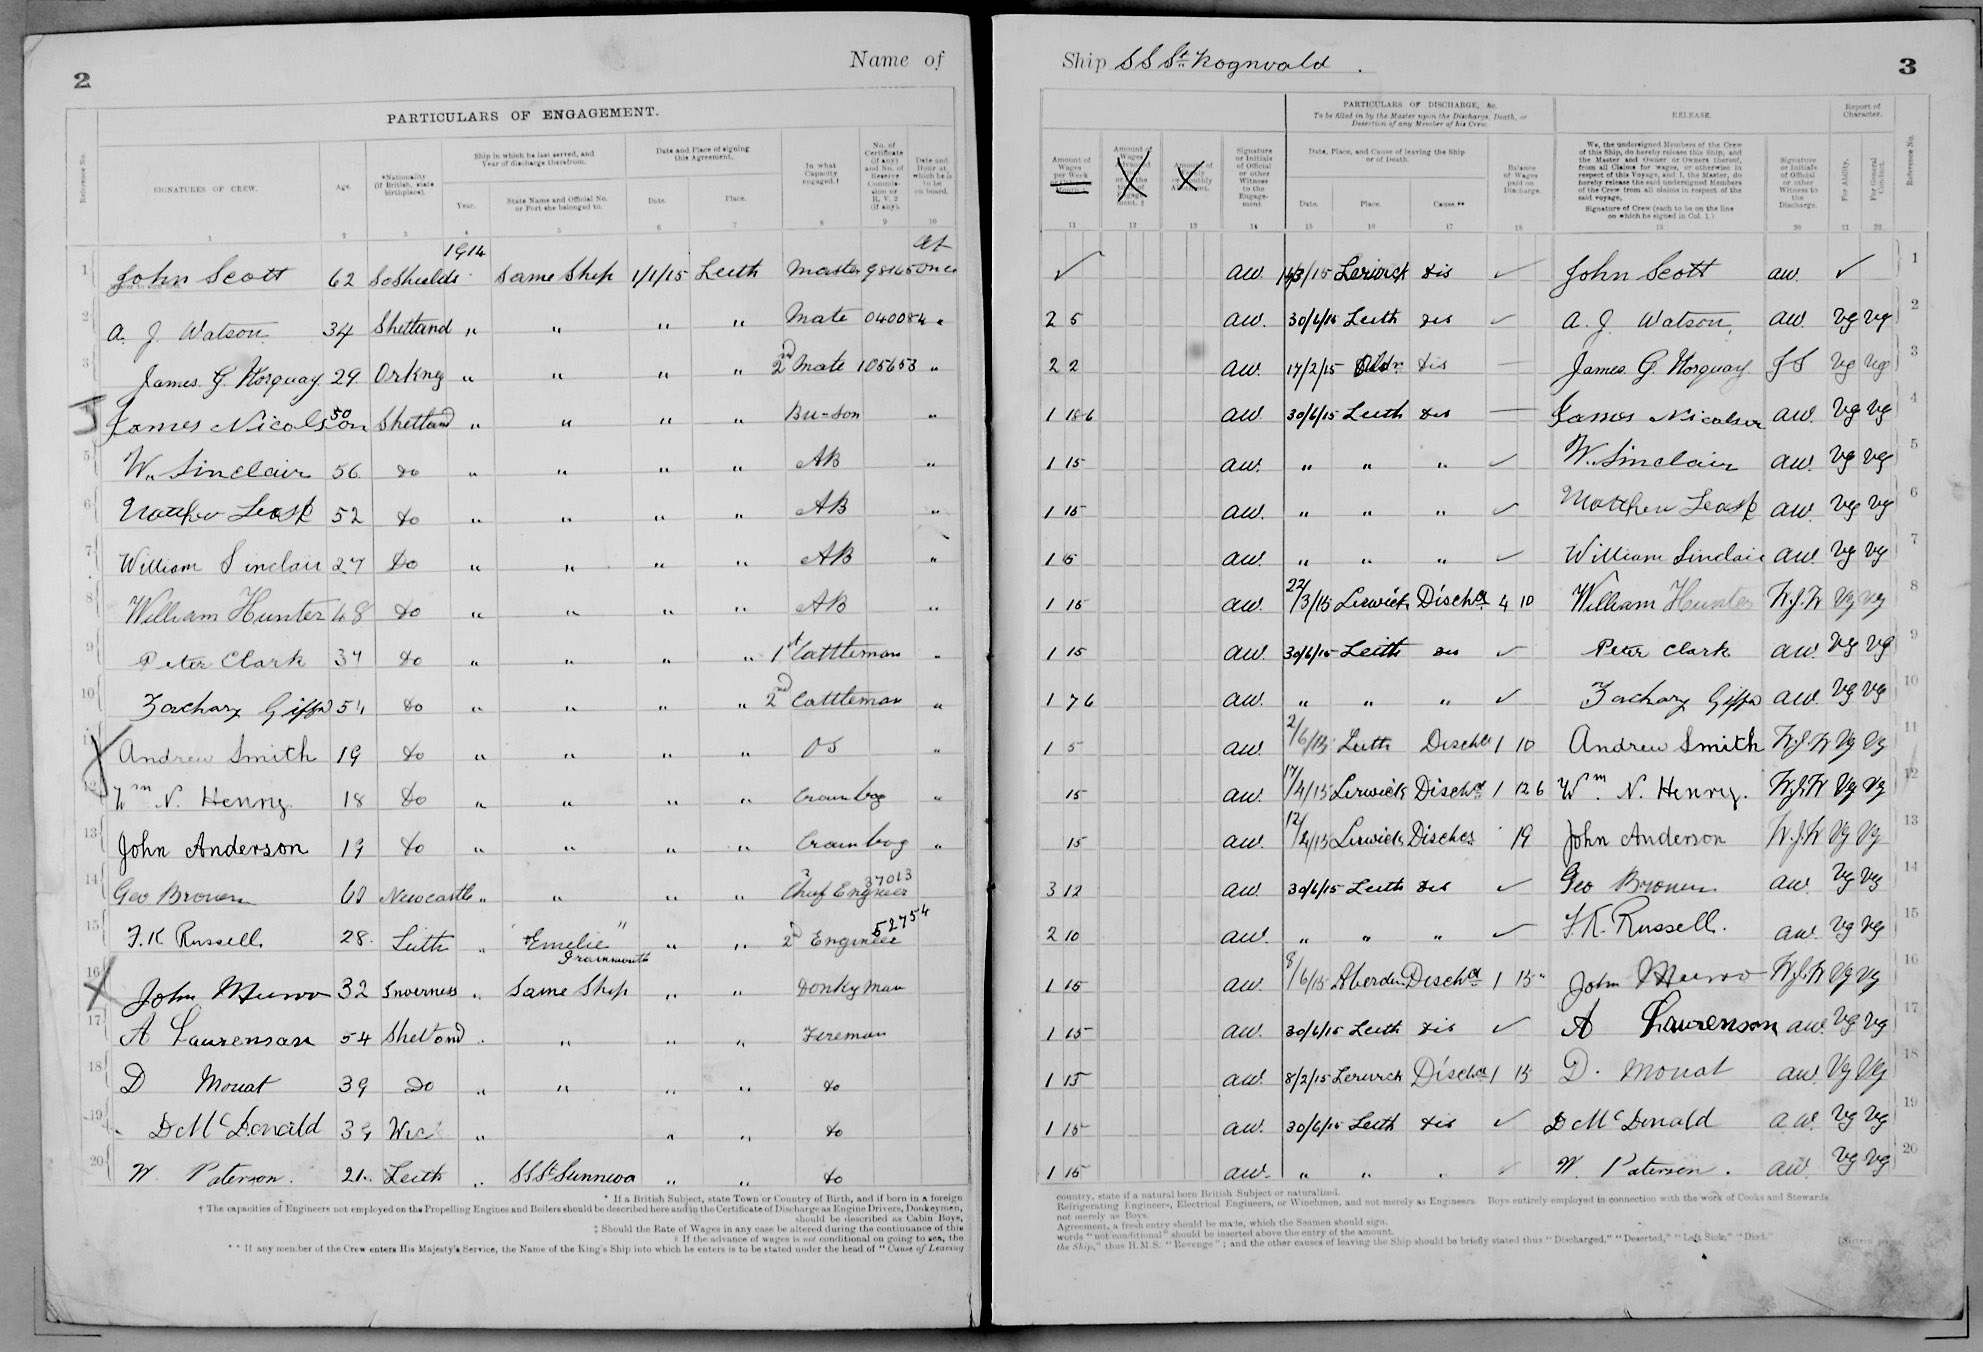 2
Name of
PARTICULARS OF ENGAGEMENT.
Reference No.
SIGNATURES OF CREW.
Age.
*Nationality (If British, state birthplace).
Ship in which he last served, and Year of discharge therefrom.
Year.
State Name and Official No. or Port she belonged to.
Date and Place of signing this Agreement.
Date.
Place.
In what Capacity engaged.†
No. of Certificate (if any) and No. of Reserve Commission or R.V. 2 (if any).
Date and Hour at which he is to be on board.
1 2 3 4 5 6 7 8 9 10
1914 At
1 John Scott 62 So Shields Same Ship 1/1/15 Leith Master 98165 once
2 A. J. Watson 34 Shetland " " " " Mate 040084 "
3 James G. Horquay 29 Orkney " " " " 2nd Mate 105653 "
4 James Nicolson 50 Shetland " " " " Bu-son "
5 W. Sinclair 56 do " " " " AB "
6 Matthew Leask 52 do " " " " AB "
7 William Sinclair 27 Do " " " " AB "
8 William Hunter 48 do " " " " AB "
9 Peter Clark 37 do " " " " 1st Cattleman "
10 Zachary 54 do " " " " 2nd Cattleman "
11 Andrew Smith 19 do " " " " OS "
12 Wm N. Henry 18 do " " " " "
13 John Anderson 19 do " " " " "
14 Geo Brown Newcastle " " " " Chief Engineer 37013
15 F.K Russell. 28. Leith " "Emelie" Grainmouth " " 2d Engineer 52754
16 John Munro 32 Inverness " Same Ship " " Donkyman
17 A Laurenson 54 Shetland " " " " Fireman
18 D Mouat 39 Do " " " " do
19 D McDonald 39 Wick " " " do
20 W. Paterson. 21. Leith " SS St Sunniva " " do
* If a British Subject, state Town or Country of Birth, and if born in a foreign
† The capacities of Engineers not employed on the Propelling Engines and Boilers should be described here and in the Certificate of Discharge as Engine Drivers, Donkeymen,
should be described as Cabin Boys,
‡ Should the Rate of Wages in any case be altered during the continuance of this
§ If the advance of wages is not conditional on going to sea, the
** If any member of the Crew enters His Majesty's Service, the Name of the King's Ship into which he enters is to be stated under the head of "Cause of Leaving
Ship SS St. Rognvald.
3
Amount of Wages per Week
Signature or Initials of Official or other Witness to the Engagement
PARTICULARS OF DISCHARGE, &c.
To be filled in by the Master upon the Discharge, Death, or Desertion of any Member of his Crew.
Date, Place, and Cause of leaving the Ship or of Death.
Date.
Place.
Cause.**
Balance of Wages paid on Discharge.
RELEASE.
We, the undersigned Members of the Crew of this Ship, do hereby release this Ship, and the Master and Owner or Owners thereof, from all Claims for wages, or otherwise in respect of this Voyage, and I, the Master, do hereby release the said undersigned Members of the Crew from all claims in respect of the said voyage.
Signature of Crew (each to be on the line on which he signed in Col. 1.)
Signature or Initials of Official or other Witness to the Discharge.
Report of Character.
For Ability.
For General Conduct.
Reference No.
11 12 13 14 15 16 17 18 19 20 21 22
✓ AW. /3/15 Lerwick dis ✓ John Scott AW. ✓ 1
2 5 AW. 30/6/15 Leith dis ✓ A. J. Watson AW. Vg Vg 2
2 2 AW. 17/2/15 dis — James G. Horquay JS Vg Vg 3
1 18 6 AW. 30/6/15 Leith dis — James Nicolson AW. Vg Vg 4
1 15 AW. " " " ✓ W. Sinclair AW. Vg Vg 5
1 15 AW. " " " ✓ Matthew Leask AW. Vg Vg 6
1 5 AW. " " " ✓ William Sinclair AW. Vg Vg 7
1 15 AW. 22/3/15 Lerwick Dischd 4 10 William Hunter W.J.W Vg Vg 8
1 15 AW. 30/6/15 Leith dis ✓ Peter Clark AW. Vg Vg 9
1 7 6 AW. " " " ✓ Zachary AW. Vg Vg 10
1 5 AW. 2/6/15 Leith Dischd 1 10 Andrew Smith W.J.W Vg Vg 11
15 AW. 17/4/15 Lerwick Dischd 1 12 6 Wm. N. Henry. W.J.W Vg Vg 12
15 AW. Lerwick Dischd 19 John Anderson W.J.W Vg Vg 13
3 12 AW. 30/6/15 Leith dis ✓ Geo Brown AW. Vg Vg 14
2 10 AW. " " " ✓ F.K. Russell. AW. Vg Vg 15
1 15 AW. 8/6/15 Aberdn Dischd 1 15 John Munro W.J.W Vg Vg 16
1 15 AW. 30/6/15 Leith dis ✓ A Laurenson AW. Vg Vg 17
1 15 AW. 8/2/15 Lerwick Dischd 1 15 D. Mouat AW. Vg Vg 18
1 15 AW. 30/6/15 Leith dis ✓ D McDonald A.W. Vg Vg 19
1 15 AW. " " " ✓ W. Paterson. AW. Vg Vg 20
country, state if a natural born British Subject or naturalized.
Refrigerating Engineers, Electrical Engineers, or Winchmen, and not merely as Engineers. Boys entirely employed in connection with the work of Cooks and Stewards
not merely as Boys.
Agreement, a fresh entry should be made, which the Seamen should sign.
words "not conditional" should be inserted above the entry of the amount.
the Ship," thus H.M.S. "Revenge"; and the other causes of leaving the Ship should be briefly stated thus "Discharged," "Deserted," "Left Sick," "Died."